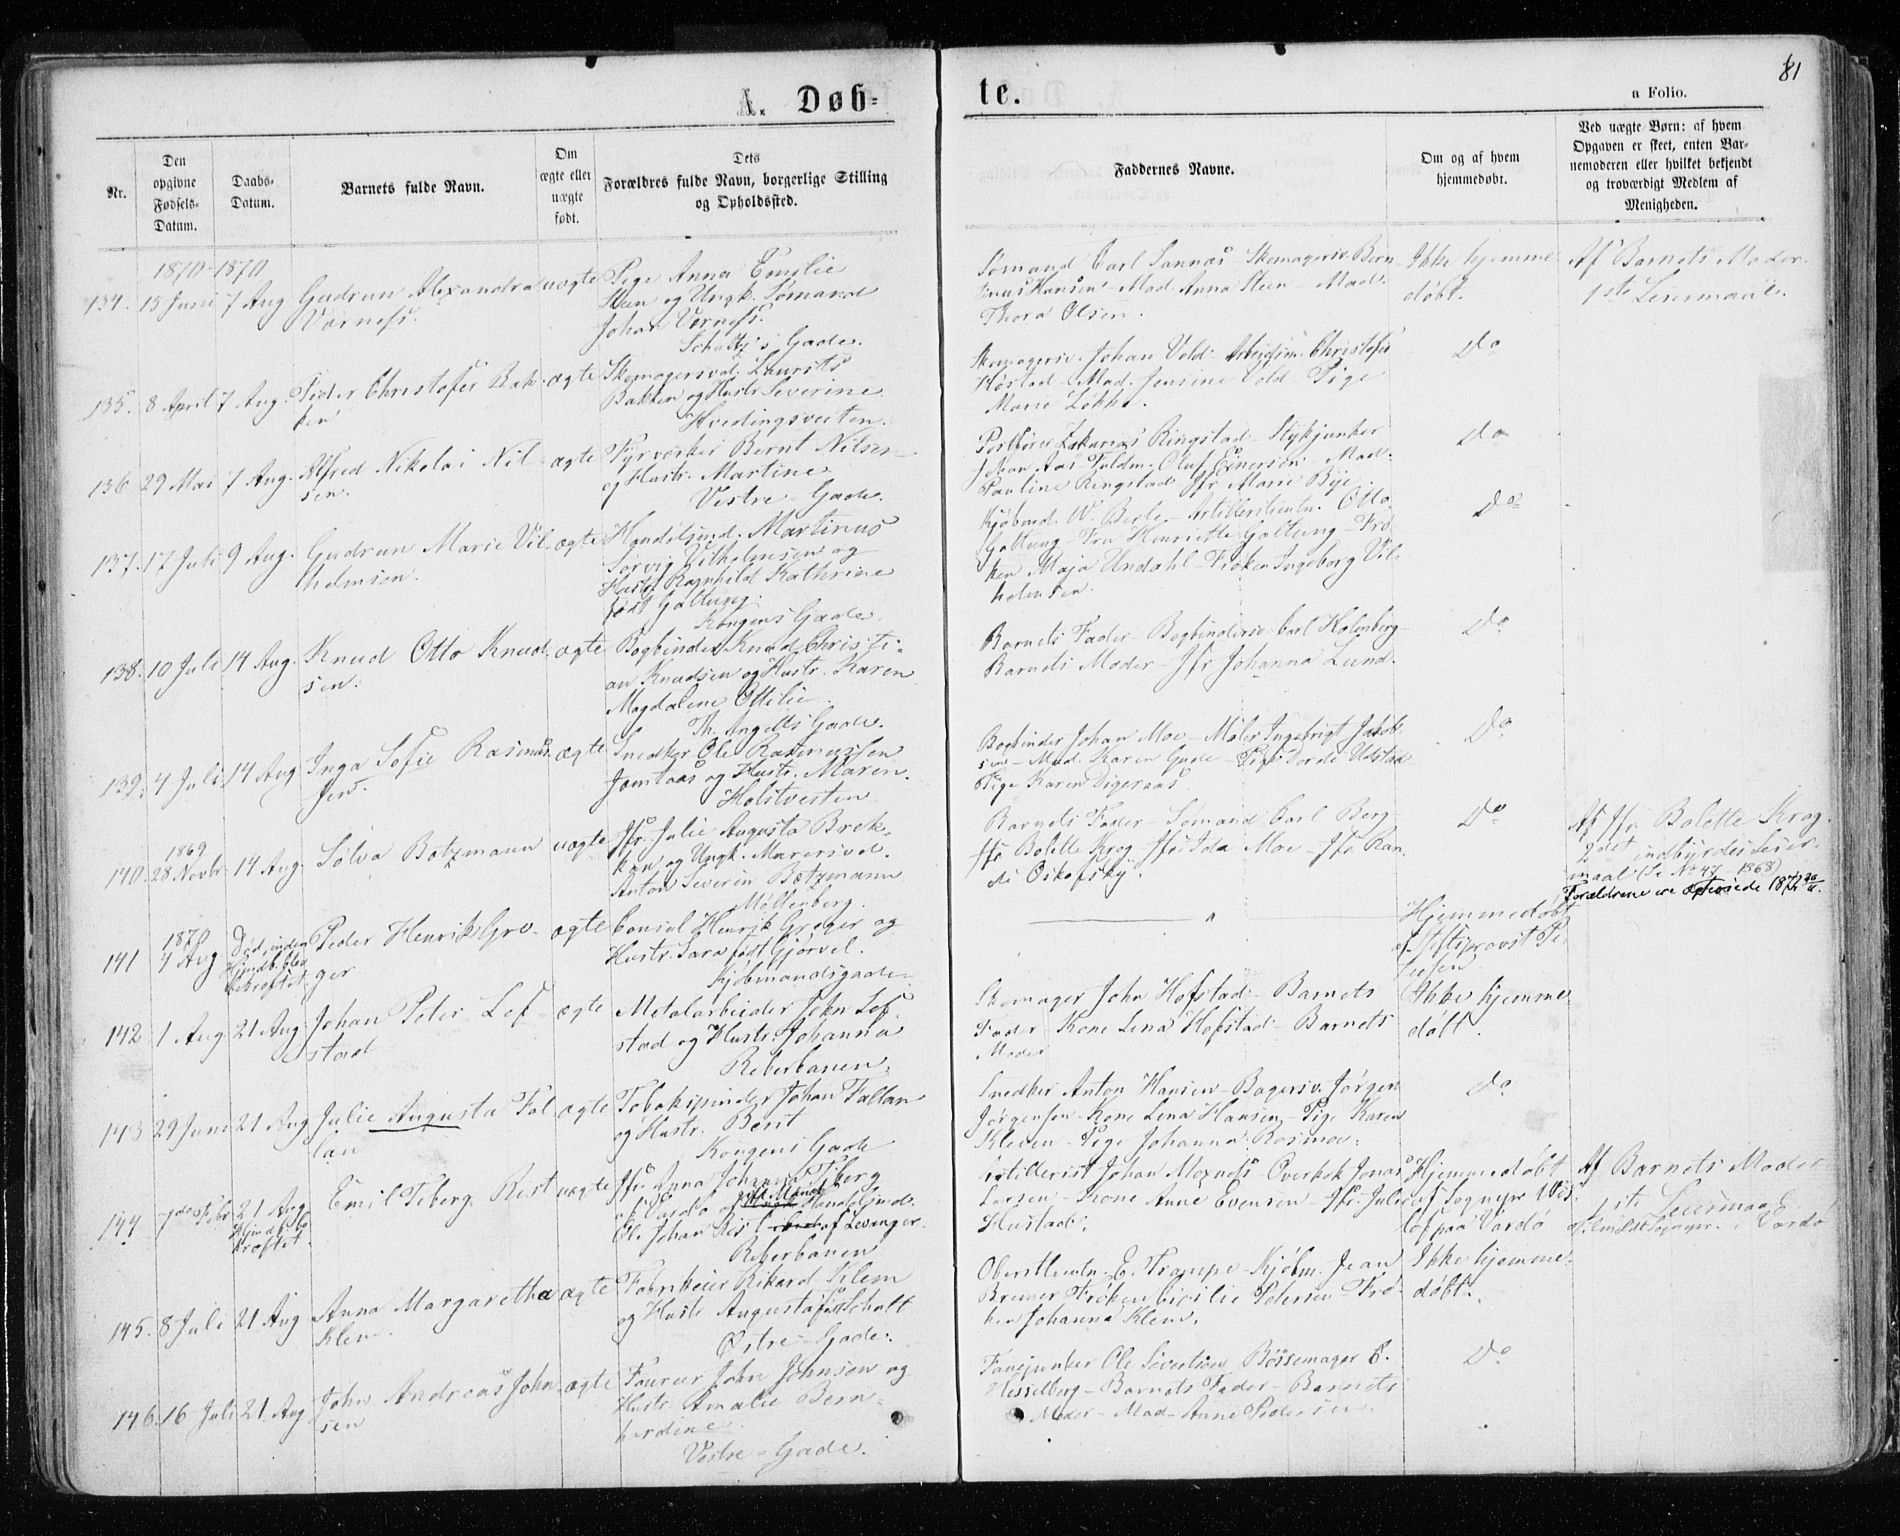 81
A. Døb-
te.
a Folio.
Nr.
Den
opgivne
Fødsels-
Datum.
Daabs-
Datum.
Barnets fulde Navn.
Om
ægte eller
uægte
født.
Dets
Forældres fulde Navn, borgerlige Stilling
og Opholdssted.
Faddernes Navne.
Om og af hvem
hjemmedøbt.
Ved uægte Børn: af hvem
Opgaven er skeet, enten Bar-
nemoderen eller hvilket bekjendt
og troværdigt Medlem af
Menigheden.
1870 1870
134. 15 Juni 7 Aug Gudrun Alexandra uægte Pige Anna Emilie
Værnefs. og Ungk. Sømand
Johan Værnefs.
Schultz's Gade.
Sømand Carl Sannæs - Skomagersv. Bern-
Hansen - Mad. Anna Steen - Mad.
Thora Olsen.
Ikke hjemme
døbt.
Af Barnets Moder.
1ste Leiermaal.
135. 8 April 7 Aug. Peder Christofer Bak- ægte Skomagersvd. Laurits
ken Bakken og Hustr. Severine
Hvedingsveiten.
Skomagersv. Johan Vold. Arbeidsm. Christofer
Høstad - Mad. Jensine Vold - Pige
Marie Løkke.
Do
136 29 Mai 7 Aug. Alfred Nikolai Nil- ægte Fyrværker Bernt Nilsen
sen. og Hustr. Martine
Vestre Gade.
Zakarias Ringstad - Stykjunker
Johan Aas - Fuldm. Oluf Einersen - Mad.
Pauline Ringstad - Jfr. Marie Bye.
Do
137. 17 Juli 9 Aug. Gudrun Marie Vil- ægte Handelsmd. Martinus
helmsen. Sorvig Vilhelmsen og
Hustr. Ragnhild Kathrine
født Galtung.
Kongens Gade.
Kjøbmd. W. - Artillerilieutn. Otto
Galtung - Fru Henriette Galtung - Frø-
ken Maja Undahl - Frøken Ingeborg Vil-
helmsen.
Do
138. 10 Juli 14 Aug. Knud Otto Knud- ægte Bogbinder Knud Christi-
sen. an Knudsen og Hustr. Karen
Magdalene Ottilie
Th. Angells Gade.
Barnets Fader - Bogbindersv. Carl Holmberg -
Barnets Moder - Jfr. Johanna Lund.
Do
139. 4 Juli 14 Aug Inga Sofie Rasmus- ægte Snedker Ole Rasmussen
sen. Jamtaas og Hustr. Maren.
Holstveiten
Bogbinder Johan Moe - Maler Ingebrigt Jakob-
sen - Mad. Karen Gude - Pige Udstad
Pige Karen Digeraas.
Do
1869
140. 28 Novbr 14 Aug. Sølva Botzmann uægte Jfr. Julie Augusta Brek-
ken og Ungk. Murersvd.
Anton Severin Botzmann
Møllenberg.
Barnets Fader - Sømand Carl Berg -
Jfr. Bolette Krog - Jfr. Ida Moe - Jfr. Ran-
di Oskofsky.
Do
Af Jfr. Bolette Krog
2det indbyrdes Leier-
maal (Se No 47 1868)
Forældrene ere 1872
1870
141 4 Aug Død, inden Peder Henrik Gre- ægte Consul Henrik Greger og
Hjmdb. blev ger Hustr. Sara født Gjørvel.
bekræftet. Kjøbmandsgade
Hjemmedøbt
af Stiftsprovst
142 1 Aug 21 Aug Johan Peter Lef- ægte Metalarbeider John Lef-
stad stad og Hustr. Johanna
Reberbanen.
Skomager John Hofstad - Barnets
Fader - Kone Lina Hofstad - Barnets
Moder
Ikke hjemme
døbt.
143 29 Juni 21 Aug Julie Augusta Fal- ægte Tobakspinder Johan Fallan
lan og Hustr. Berit
Kongens Gade
Snedker Anton Hansen - Bagersv. Jørgen
Jørgensen - Kone Lina Hansen - Pige Karen
Kleven - Pige Johanna Rosmoe.
Do
144 7de Febr. 21 Aug Emil Tiberg Rist uægte Jfr. Anna Johanna Tiberg
Hjmdb. be af Vardø og Handelsmd.
kræftet. Ole Johan Rist af Levanger.
Reberbanen
Artillerist Johan Moxnes - Overkok Jonas
Larsen - Kone Anne Evensen - Jfr. Julie
Hustad.
Hjemmedøbt
af Sognepr.
paa Vardø
Af Barnets Moder
1ste Leiermaal
Vardø
145. 8 Juli 21 Aug Anna Margaretha ægte Fannkeier Rikard Klem
Klem og Hustr. Augusta født Schult
Østre Gade.
Oberstlieutn. E. Trampe - Kjøbm. Jean
Bremer - Frøken Cecilie Petersen - Frø-
ken Johanna Klem.
Ikke hjemme-
døbt.
146. 16 Juli 21 Aug John Andreas John- ægte Fourer John Johnsen og
sen Hustr. Amalie Bern-
hardine
Vestre Gade.
Fanejunker Ole Sivertsen - Bøssemager E.
Hesselberg - Barnets Fader - Barnets
Moder - Mad. Anne Pedersen.
Do